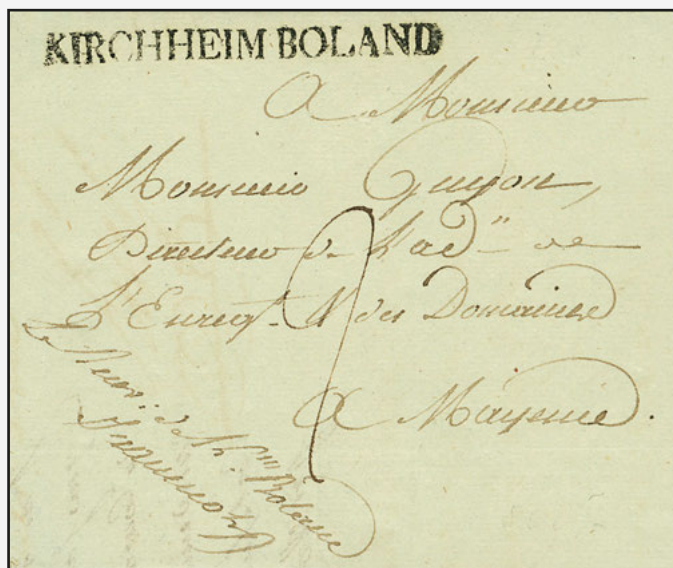 KIRCHHEIM BOLAND
A Monsieur
Monsieur Guyon,
Directeur de L'ad.on de
L'Enregt. & des Domaines
A Mayence.
de Kh.m Boland